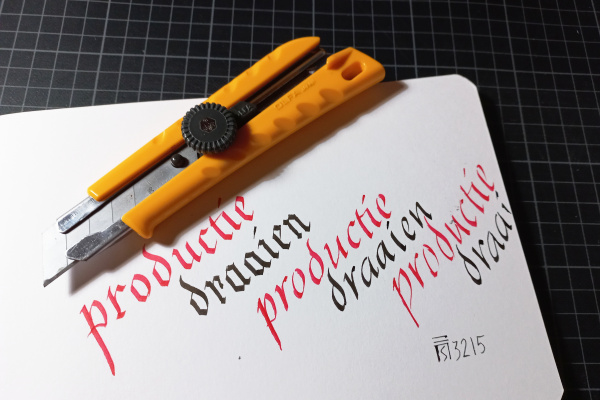 productie
draaien
productie
draaien
productie
draai
3215